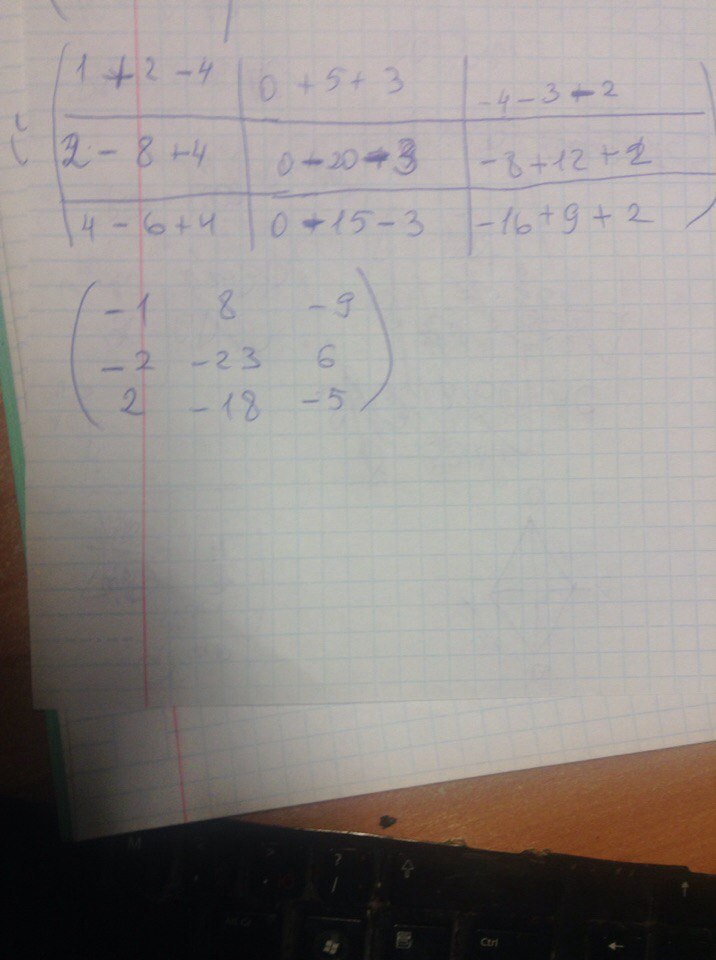 1 + 2 - 4 0 + 5 + 3 -4 - 3 - 2
2 - 8 + 4 0 - 20 - 3 -8 + 12 + 2
4 - 6 + 4 0 - 15 - 3 -16 + 9 + 2
-1 8 -9
-2 -23 6
2 -18 -5
?
/
Ctrl